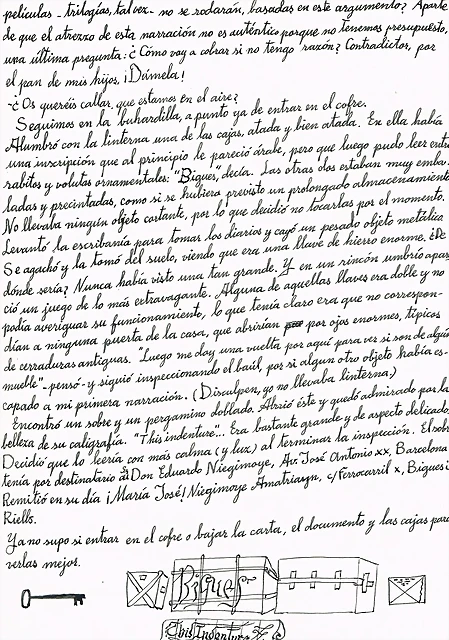 películas - trilogías, tal vez - no se rodarán, basadas en este argumento? Aparte
de que el atrezzo de esta narración no es auténtico porque no tenemos presupuesto,
una última pregunta: ¿Cómo voy a cobrar si no tengo razón? Contradictos, por
el pan de mis hijos, ¡Dámela!
-¿Os queréis callar, que estamos en el aire?
Seguimos en la buhardilla, a punto ya de entrar en el cofre.
Alumbró con la linterna una de las cajas, atada y bien atada. En ella había
una inscripción que al principio le pareció árabe, pero que luego pudo leer entre
rabitos y volutas ornamentales: "Bigues", decía. Las otras dos estaban muy emba-
ladas y precintadas, como si se hubiera previsto un prolongado almacenamiento
No llevaba ningún objeto cortante, por lo que decidió no tocarlas por el momento.
Levantó la escribanía para tomar los diarios y cayó un pesado objeto metálico
Se agachó y la tomó del suelo, viendo que era una llave de hierro enorme. ¿De
dónde sería? Nunca había visto una tan grande. Y en un rincón umbrío apare
ció un juego de lo más extravagante. Alguna de aquellas llaves era doble y no
podía averiguar su funcionamiento, lo que tenía claro era que no correspon-
dían a ninguna puerta de la casa, que abrirían por ojos enormes, típicos
de cerraduras antiguas. "Luego me doy una vuelta por aquí para ver si son de algún
mueble" -pensó- y siguió inspeccionando el baúl, por si algun otro objeto había es-
capado a mi primera narración. (Disculpen, yo no llevaba linterna.)
Encontró un sobre y un pergamino doblado. Abrió éste y quedó admirado por la
belleza de su caligrafía. "This indenture"... Era bastante grande y de aspecto delicado.
Decidió que lo leería con más calma (y luz) al terminar la inspección. El sobre
tenía por destinatario a Don Eduardo Niegimoye, Av. José Antonio xx, Barcelona
Remitió en su día ¡María José! Niegimoye Amatriasyn, c/Ferrocarril x, Bigues i
Riells.
Ya no supo si entrar en el cofre o bajar la carta, el documento y las cajas para
verlas mejor.
Bigues
This Indenture